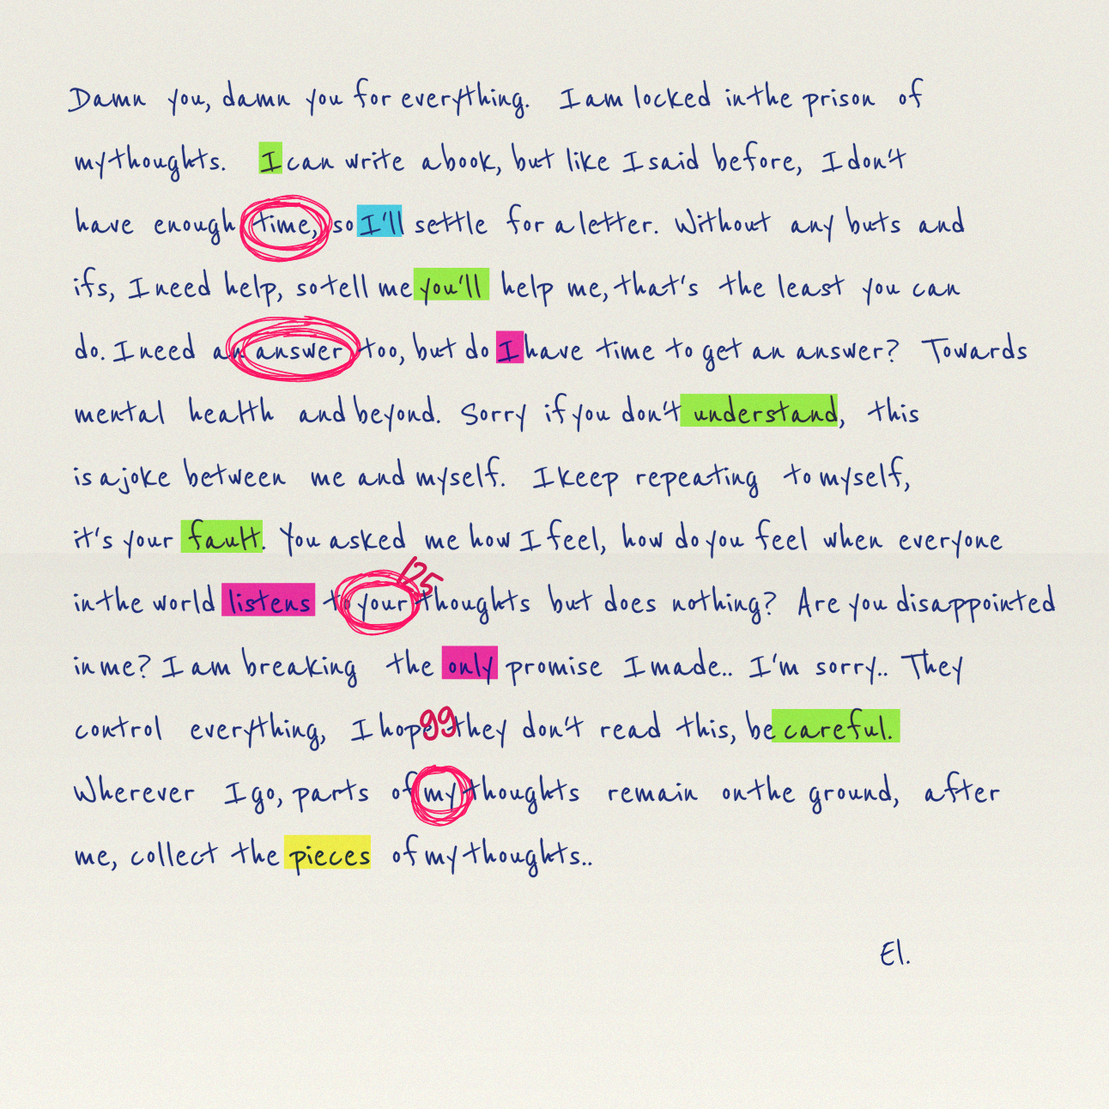 Damn you, damn you for everything. I am locked in the prison of
my thoughts. I can write a book, but like I said before, I don't
have enough time, so I'll settle for a letter. Without any buts and
ifs, I need help, so tell me you'll help me, that's the least you can
do. I need an answer too, but do I have time to get an answer? Towards
mental health and beyond. Sorry if you don't understand, this
is a joke between me and myself. I keep repeating to myself,
it's your fault. You asked me how I feel, how do you feel when everyone
125
in the world listens to your thoughts but does nothing? Are you disappointed
in me? I am breaking the only promise I made.. I'm sorry.. They
control everything, I hope 99 they don't read this, be careful.
Wherever I go, parts of my thoughts remain on the ground, after
me, collect the pieces of my thoughts..
El.